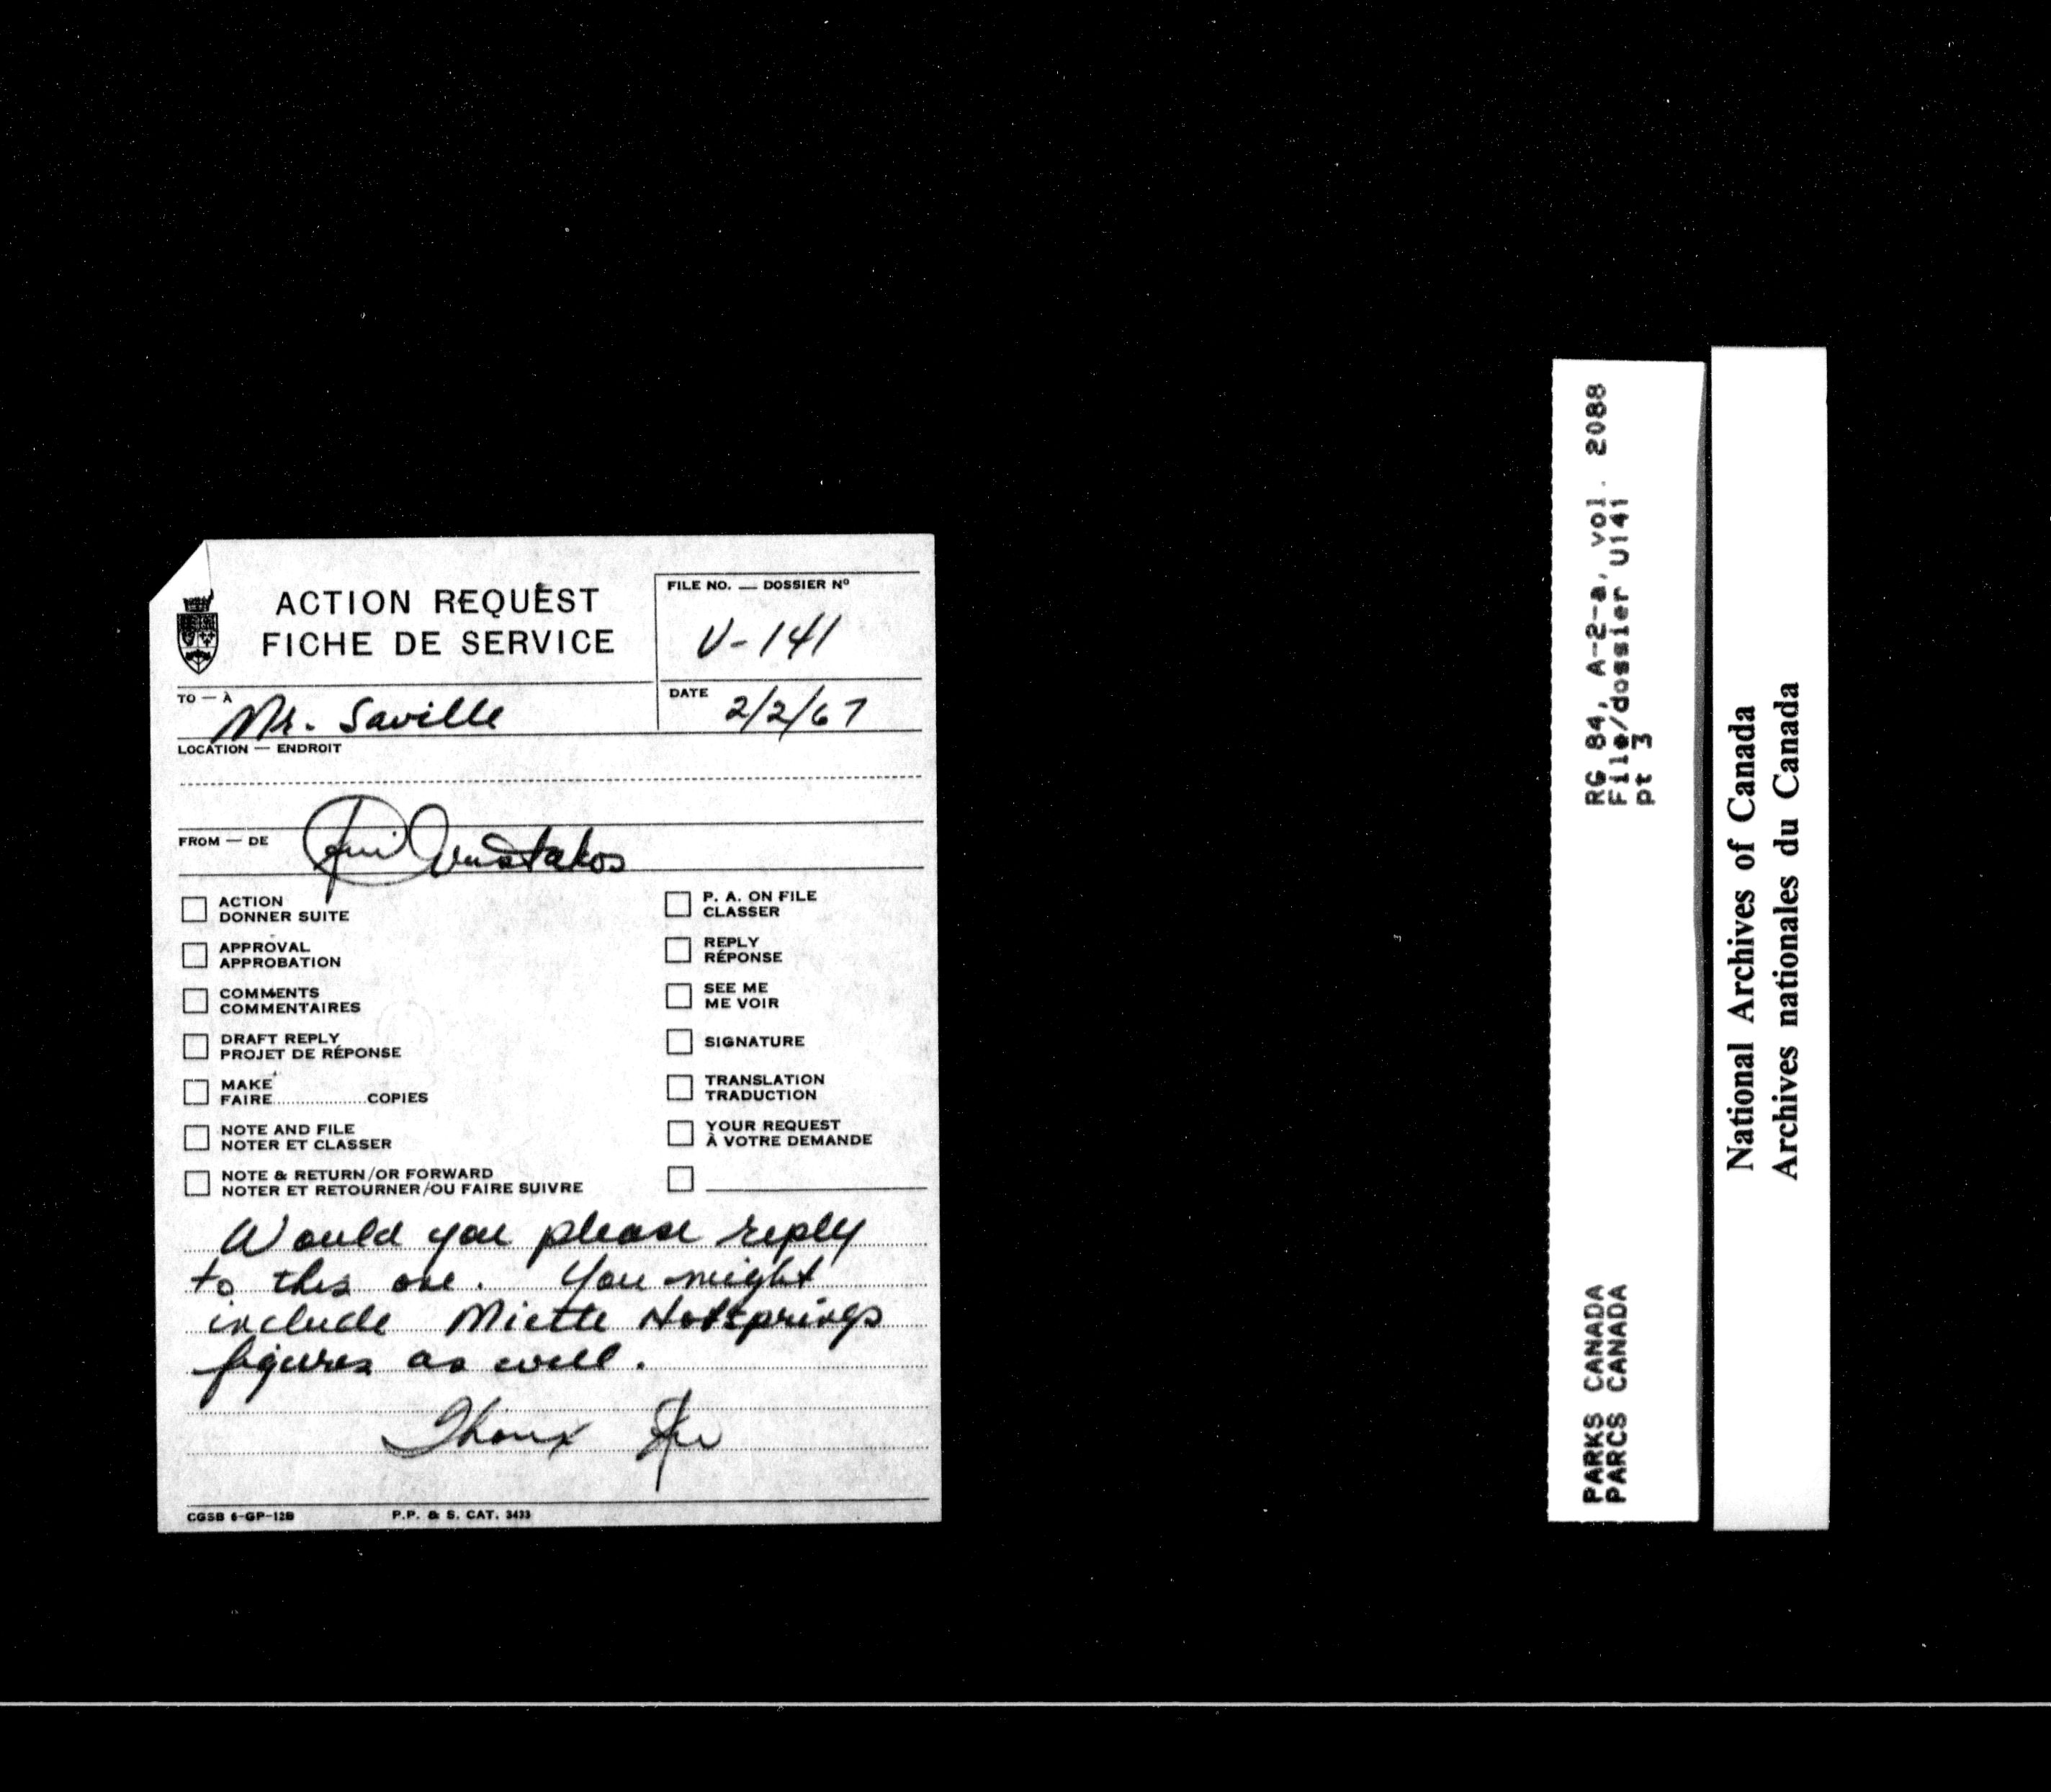 ACTION REQUEST
FICHE DE SERVICE
FILE NO. — DOSSIER Nº
U-141
TO — À
Mr. Saville
DATE
2/2/67
LOCATION — ENDROIT
FROM — DE
ACTION
DONNER SUITE
APPROVAL
APPROBATION
COMMENTS
COMMENTAIRES
DRAFT REPLY
PROJET DE RÉPONSE
MAKE
FAIRE..................COPIES
NOTE AND FILE
NOTER ET CLASSER
NOTE & RETURN/OR FORWARD
NOTER ET RETOURNER/OU FAIRE SUIVRE
P. A. ON FILE
CLASSER
REPLY
RÉPONSE
SEE ME
ME VOIR
SIGNATURE
TRANSLATION
TRADUCTION
YOUR REQUEST
À VOTRE DEMANDE
Would you please reply
to this one. You might
include Miette Hotsprings
figures as well.
Thanx
CGSB 6-GP-12B P.P. & S. CAT. 3433
RG 84, A-2-a, vol. 2088
File/dossier U141
pt 3
PARKS CANADA
PARCS CANADA
National Archives of Canada
Archives nationales du Canada